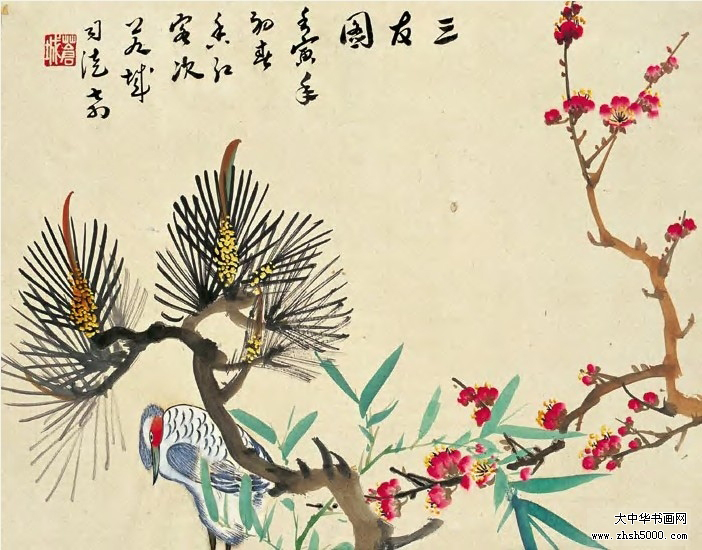 三友圖
壬寅年
初春
香江
客次
若城
司徒奇
蒼城
大中华书画网
www.zhsh5000.com